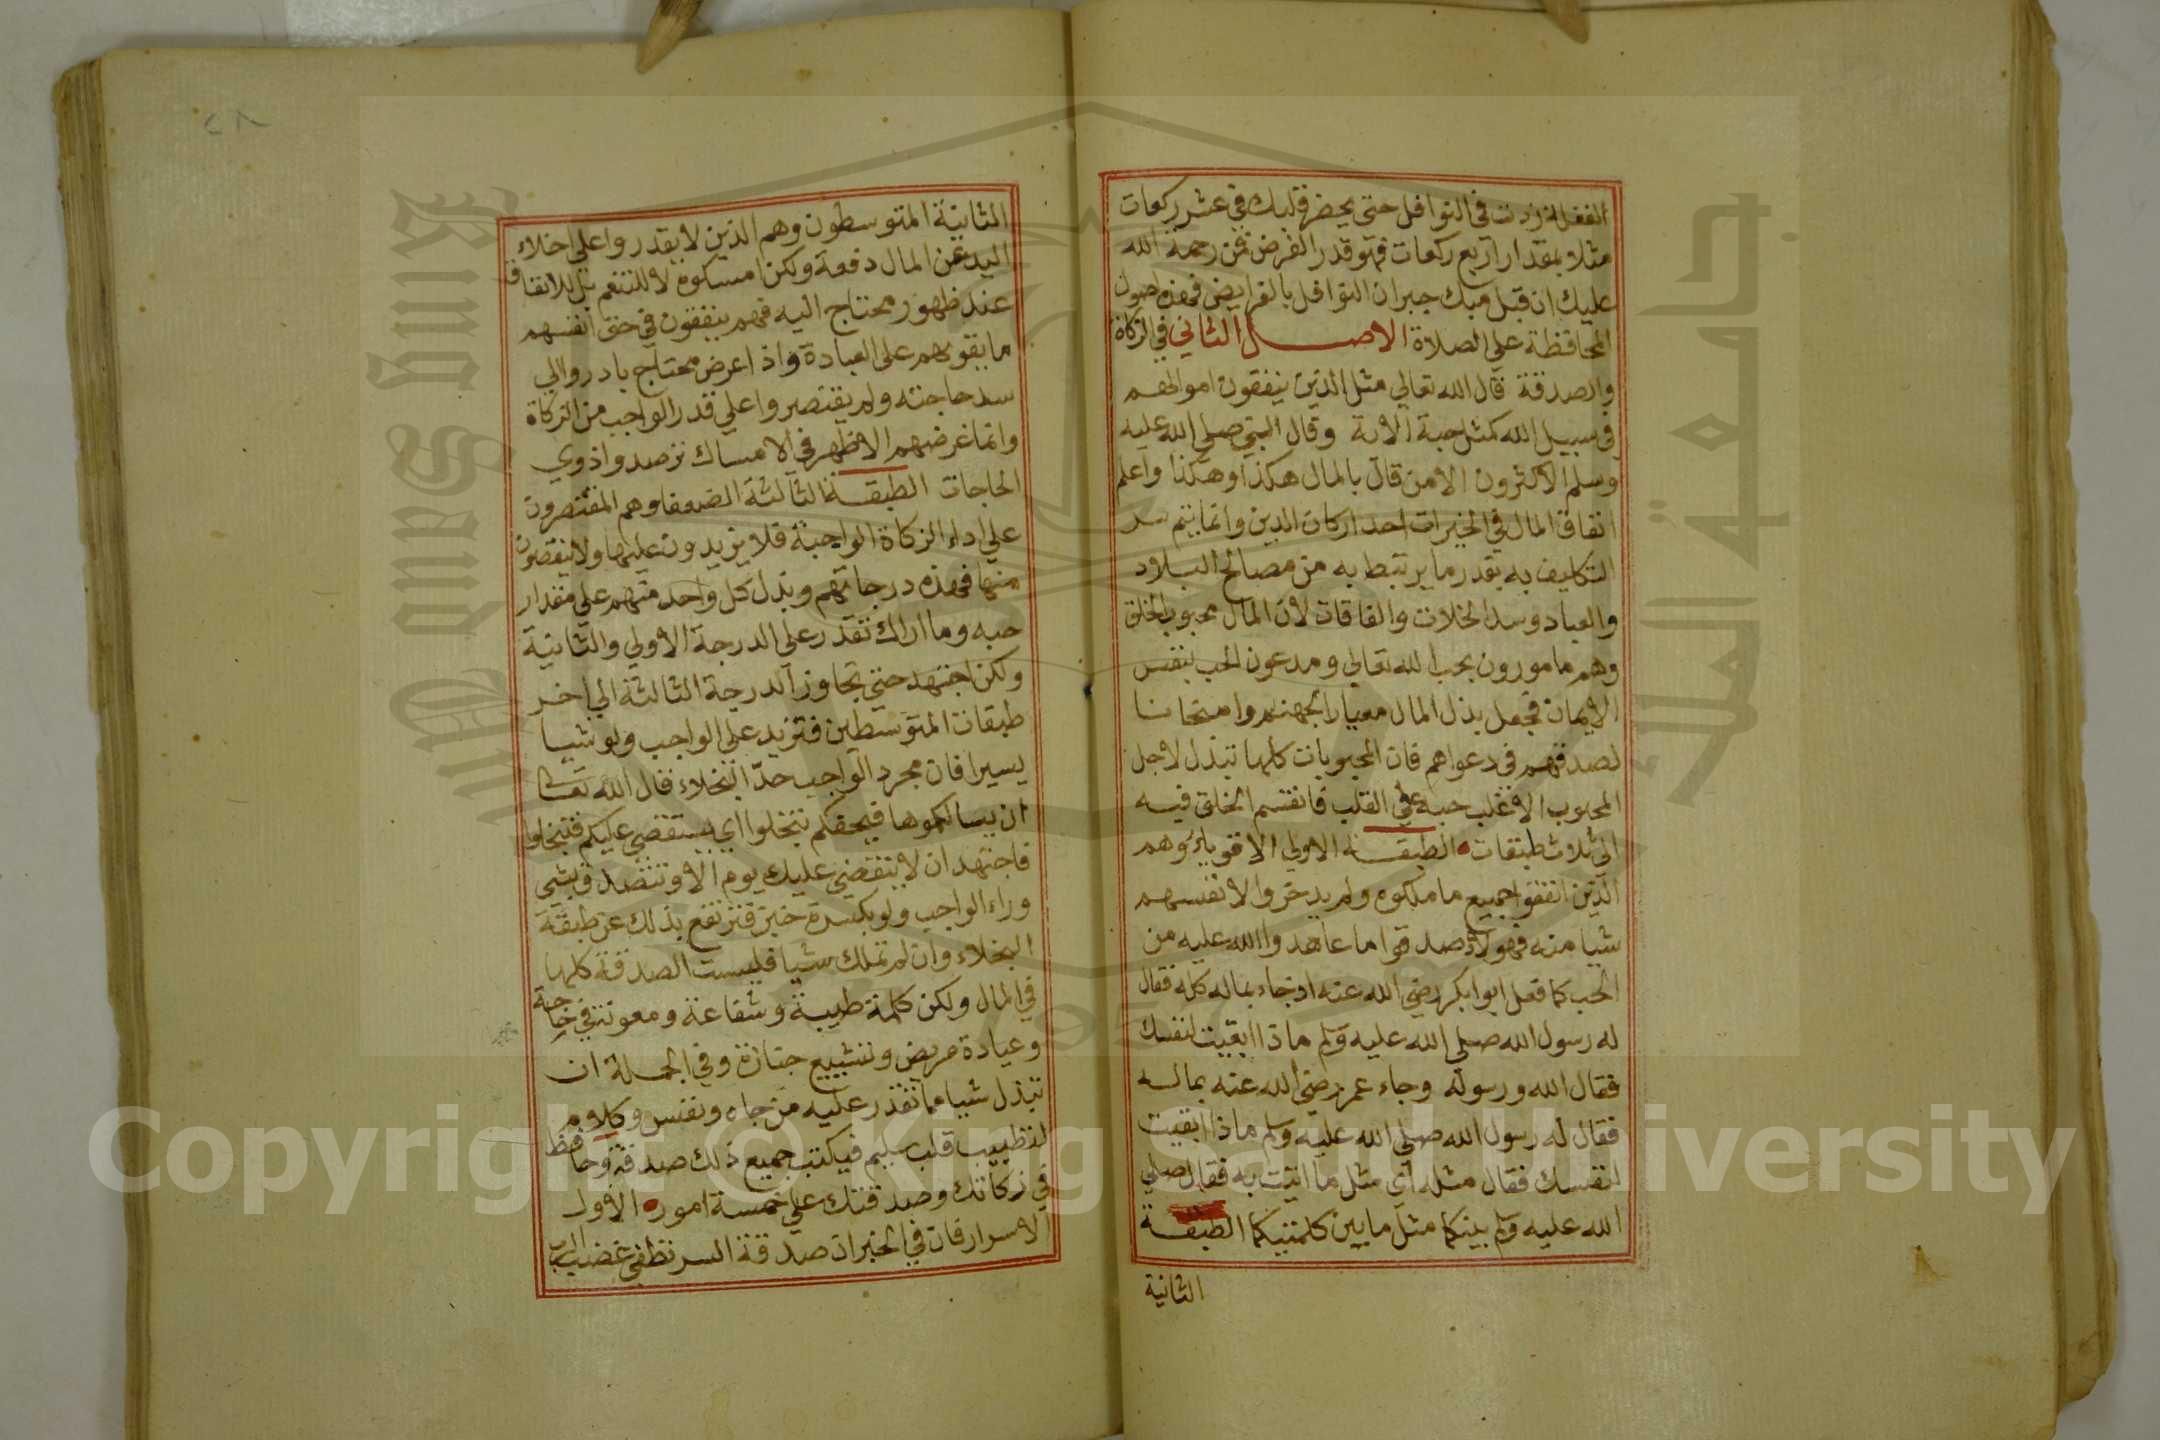 الغفلة زدت في النوافل حتى يحضر قلبك في عشر ركعات
مثلا بمقدار اربع ركعات فهو قدر الفرض فمن رحمة الله
عليك ان قبل منك جبران النوافل بالفرايض فهذه اصول
المحافظة علي الصلاة الاصل الثاني في الزكاة
والصدقة قال الله تعالي مثل الذين ينفقون اموالهم
في سبيل الله كمثل حبة الاية وقال النبي صلي الله عليه
وسلم الاكثرون الا من قال بالمال هكذا وهكذا واعلم
انفاق المال في الخيرات احد اركان الدين وانما يتم سر
التكليف به بقدر ما يرتبط به من مصالح البلاد
والعباد وسد الخلات والفاقات لان المال محبوب الخلق
وهم مامورون بحب الله تعالي ومدعون الحب بنفس
الايمان فجعل بذل المال معيارا لحبهم وامتحانا
لصدقهم في دعواهم فان المحبوبات كلها تبذل لاجل
المحبوب الاغلب حبه علي القلب فانقسم الخلق فيه
الي ثلاث طبقات الطبقة الاولي الاقويا وهم
الذين انفقوا جميع ما ملكوه ولم يدخروا لانفسهم
شيا منه فهولاء صدقوا ما عاهدوا الله عليه من
الحب كما فعل ابوا بكر رضي الله عنه اذ جاء بماله كله فقال
له رسول الله صلي الله عليه وسلم ماذا ابقيت لنفسك
فقال الله ورسوله وجاء عمر رضي الله عنه بماله
فقال له رسول الله صلي الله عليه وسلم ماذا ابقيت
لنفسك فقال مثله اي مثل ما اتيت به فقال صلي
الله عليه وسلم بينكما مثل ما بين كلمتيكما الطبقة
الثانية
الثانية المتوسطون وهم الذين لا يقدروا علي اخلاء
اليد عن المال دفعة ولكن امسكوه لا للتنعم بل للانفاق
عند ظهور محتاج اليه فهم ينفقون في حق انفسهم
ما يقويهم علي العبادة واذا عرض محتاج بادروا الي
سد حاجته ولم يقتصروا علي قدر الواجب من الزكاة
وانما غرضهم الاظهر في الامساك ترصد واذوي
الحاجات الطبقة الثالثة الضعفا وهم المقتصرون
علي اداء الزكاة الواجبة فلا يزيدون عليها ولا ينقصون
منها فهذه درجاتهم وبذل كل واحد منهم علي مقدار
حبه وما اراك تقدر علي الدرجة الاولي والثانية
ولكن اجتهد حتي تجاوز الدرجة الثالثة الي اخر
طبقات المتوسطين فتزيد علي الواجب ولو شيا
يسيرا فان مجرد الواجب حد البخلاء قال الله تعالى
ان يسالكموها فيحفكم تبخلوا اي يستقصي عليكم فتبخلوا
فاجتهد ان لا ينقضي عليك يوم الا وتتصدق بشي
وراء الواجب ولو بكسرة خبز فترتفع بذلك عن طبقة
البخلاء وان لم تملك شيا فليست الصدقة كلها
في المال ولكن كلمة طيبة وشفاعة ومعونة في حاجة
وعيادة مريض وتشييع جنازة وفي الجملة ان
تبذل شيا مما تقدر عليه من جاه ونفس وكلام
لتطييب قلب سليم فيكتب جميع ذلك صدقة وحافظ
في زكاتك وصدقتك علي خمسة امور الاول
الاسرار فان في الخبر ان صدقة السر تطفي غضب الرب
Copyright © King Saud University
جامعة الملك
King Saud